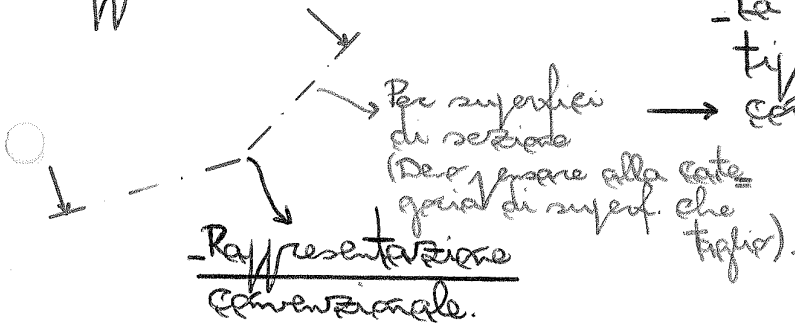 - La
Per superfici
di sezione
(Devo pensare alla cate=
goria di superf. che
taglio).
- Rappresentazione
convenzionale.